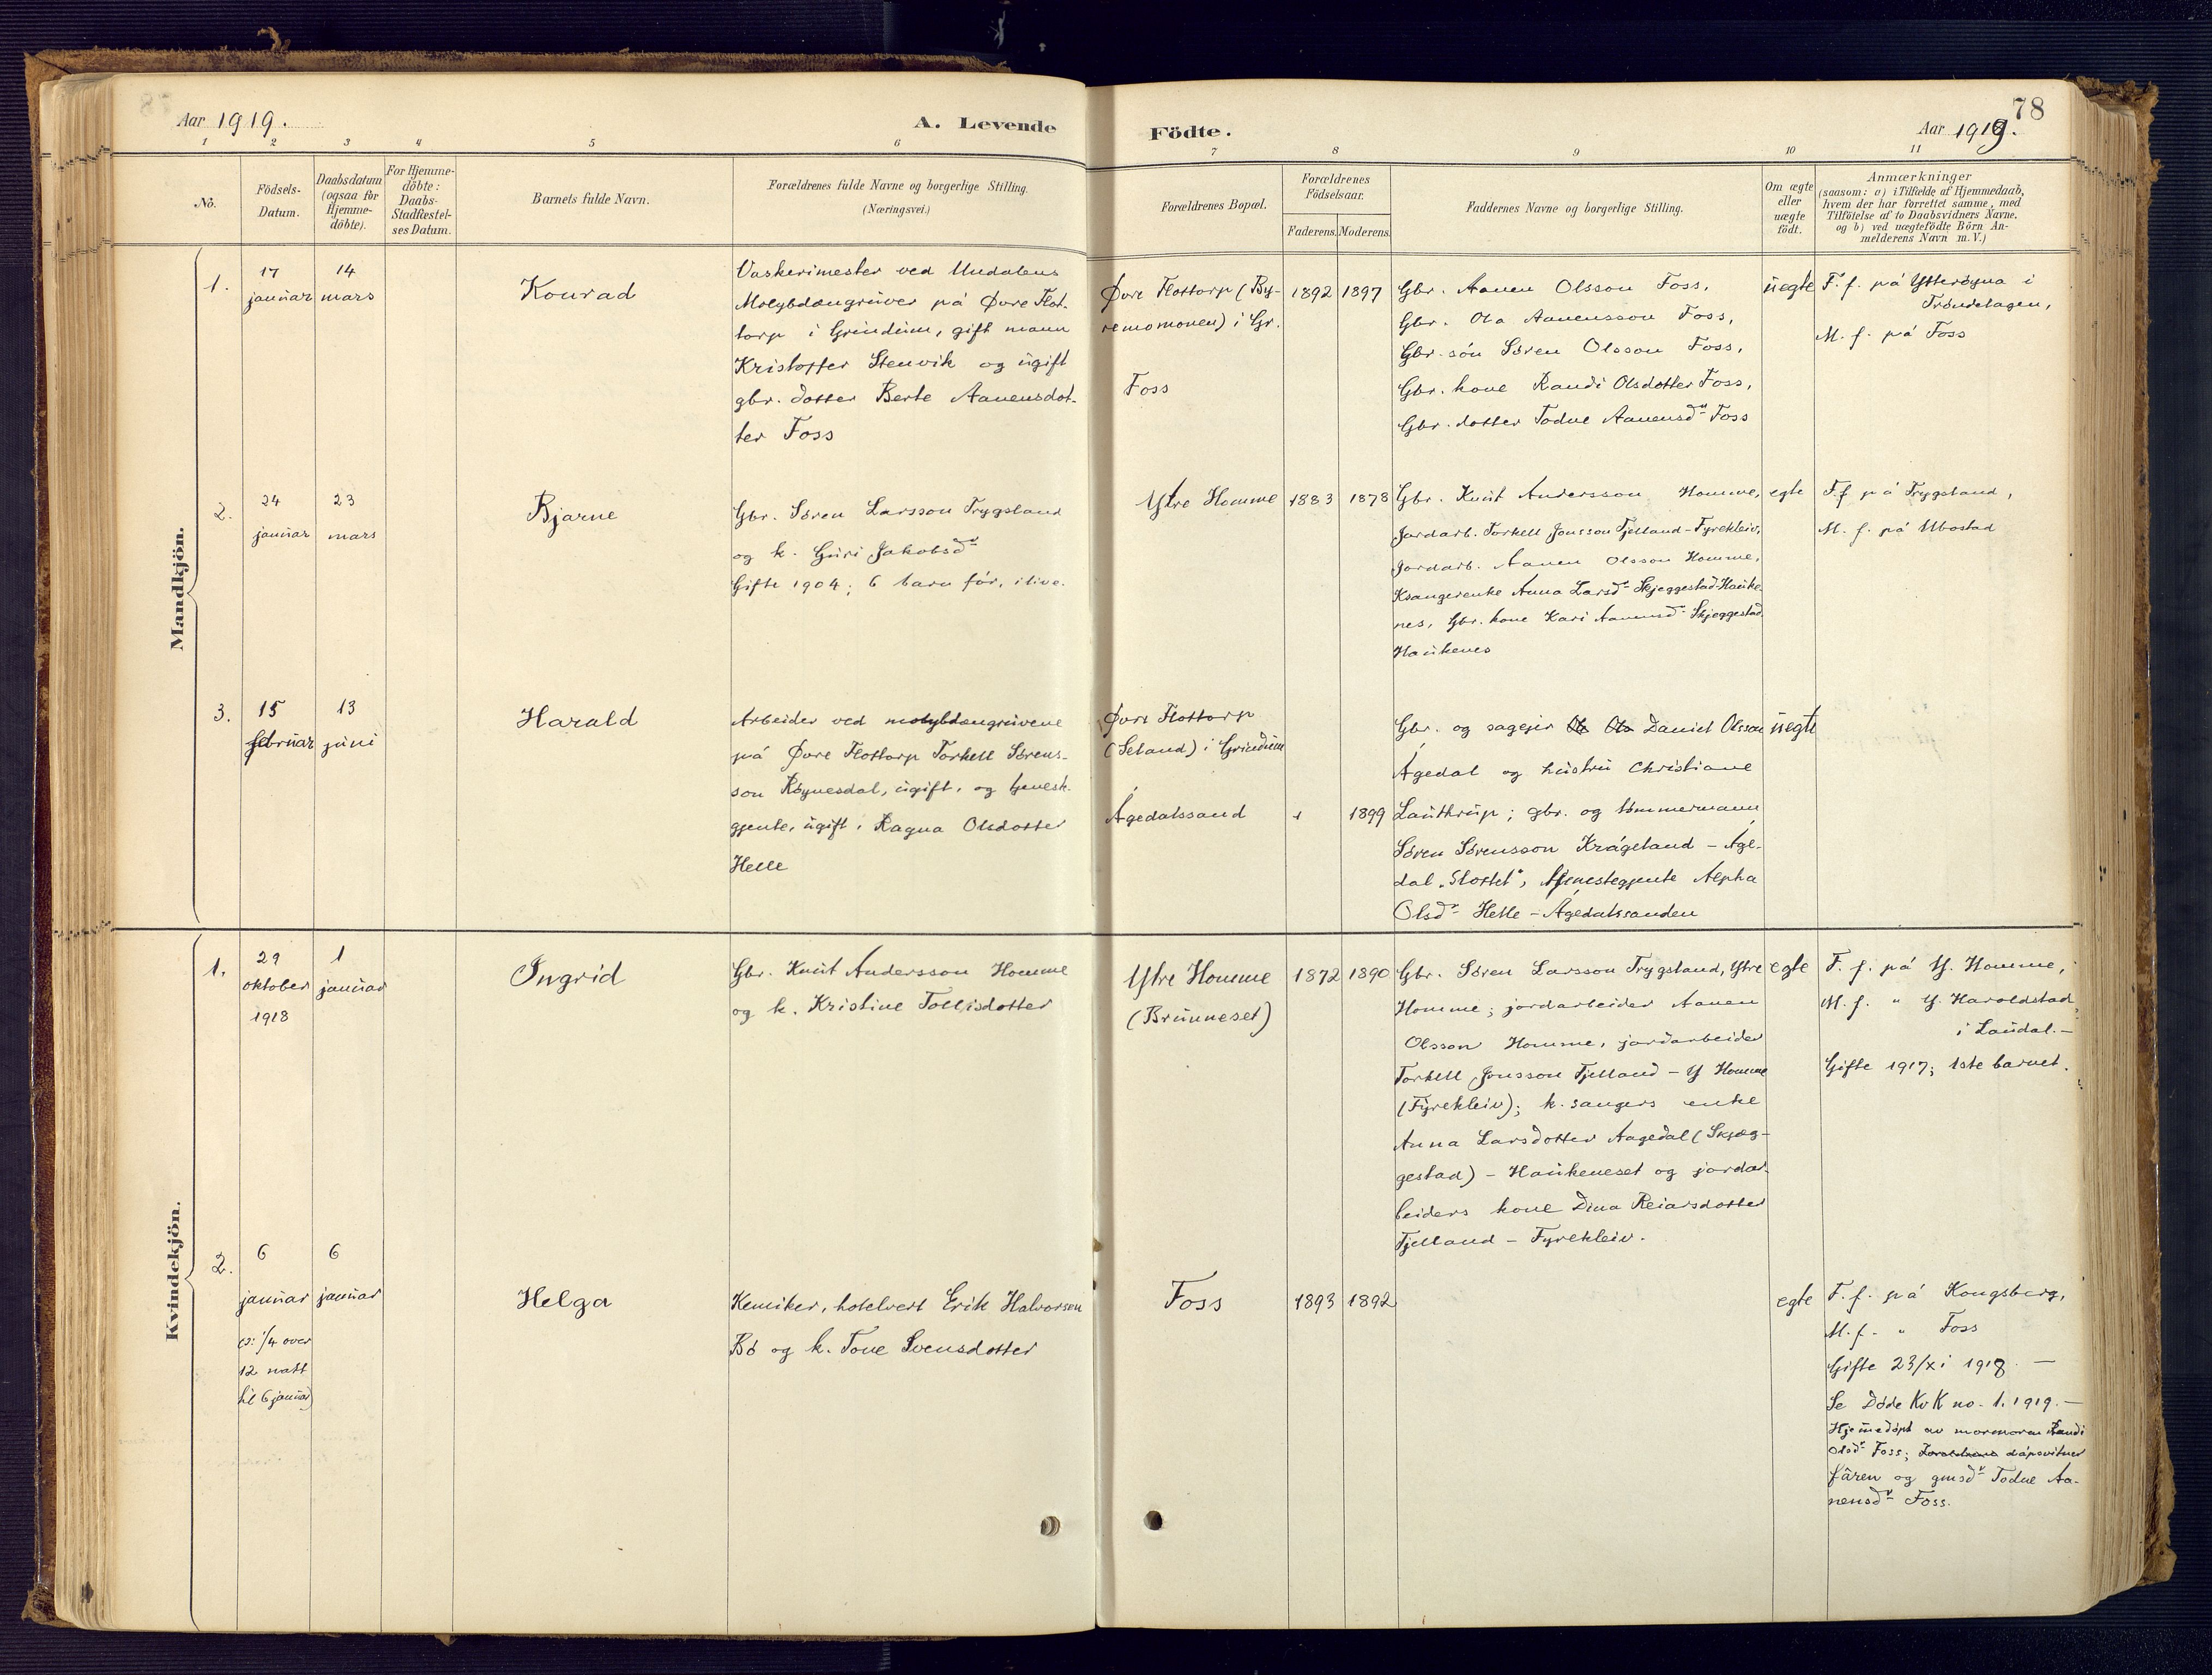 78
Aar 1919.
A. Levende
Födte.
Aar 1919.
1 2 3 4 5 6 7 8 9 10 11
No.
Födsels-
Datum.
Daabsdatum
(ogsaa for
Hjemme-
döbte).
For Hjemme-
döbte:
Daabs-
Stadfæstel-
ses Datum.
Barnets fulde Navn.
Forældrenes fulde Navne og borgerlige Stilling.
(Næringsvei.)
Forældrenes Bopæl.
Forældrenes
Födselsaar.
Faderens.
Moderens.
Faddernes Navne og borgerlige Stilling.
Om ægte
eller
uægte
födt.
Anmærkninger
(saasom: a) i Tilfælde af Hjemmedaab,
hvem der har forrettet samme, med
Tilföielse af to Daabsvidners Navne,
og b) ved uægtefödte Börn An-
melderens Navn m. V.)
Mandkjön.
1.
17
januar
14
mars
Konrad
Vaskerimester ved Undalens
Molybdængruver på Øvre Flot-
torp i Grindum, gift mann
Kristoffer Stenvik og ugift
gbr. dotter Berte Aanensdot-
ter Foss
Øvre Flottorp (By-
remomonen) i Gr.
Foss
1892
1897
Gbr. Aanen Olsson Foss,
Gbr. Ola Aanensson Foss,
Gbr. són Søren Olsson Foss,
Gbr. kone Randi Olsdotter Foss,
Gbr. dotter Todne Aanensdr Foss
uegte
F. f. på Ytterøyna i
Trøndelagen,
M. f. på Foss
2.
24
januar
23
mars
Bjarne
Gbr. Søren Larsson Trygsland
og k. Guri Jakobsdr
Gifte 1904; 6 barn før, ilive.
Ytre Homme
1883
1878
Gbr. Knut Andersson Homme,
Jordarb. Torkell Jonsson Tjelland-Fyrekleiv,
Jordarb. Aanen Olsson Homme,
Ksangerenke Anna Larsdr Skjeggestad-Hauke
nes, Gbr. kone Kari Aanensdr Skjeggestad
Haukenes
egte
F. f. på Trygsland,
M. f. på Ubostad
3.
15
februar
13
juni
Harald
Arbeider ved molybdængruvene
på Øvre Flottorp Torkell Sørens-
son Røynesdal, ugift, og tjenest-
gjente, ugift, Ragna Olsdotter
Helle
Øvre Flottorp
(Seland) i Grindum
Ågedalssand
1899
Gbr. og sageier Daniel Olsson
Ågedal og hustru Christiane
Lauthrup; gbr. og tømmermann
Søren Sørensson Krågeland - Åge-
dal "Slottet", tjenestegjente Alpha
Olsdr Helle - Ågedalssanden
uegte
Kvindekjön.
1.
29
oktober
1918
1
januar
Ingrid
Gbr. Knut Andersson Homme
og k. Kristine Tollisdotter
Ytre Homme
(Brunneset)
1872
1890
Gbr. Søren Larsson Trygsland, Ytre
Homme; jordarbeider Aanen
Olsson Homme, jordarbeider
Torkell Jonsson Tjelland - Y Homme
(Fyrekleiv); k. sangers enke
Anna Larsdotter Aagedal (Skjeg-
gestad) - Haukeneset og jordar-
beiders kone Dina Reiarsdotter
Tjelland - Fyrekleiv.
egte
F. f. på Y. Homme,
M. f. " Y. Haroldstad
i Laudal. -
Gifte 1917; 1ste barnet.
2.
6
januar
(ɔ: 1/4 over
12 natt
til 6 januar)
6
januar
Helga
Kemiker, hotelvert Erik Halvorsen
Bó og k. Tone Svensdotter
Foss
1893
1892
egte
F. f. på Kongsberg,
M. f. " Foss
Gifte 23/xi 1918. -
Se Døde KvK no. 1. 1919. -
Hjemedøpt av mormoren Randi
Olsdr Foss; dåpsvitner
fåren og gmsdr Todne Aa-
nensdr Foss.